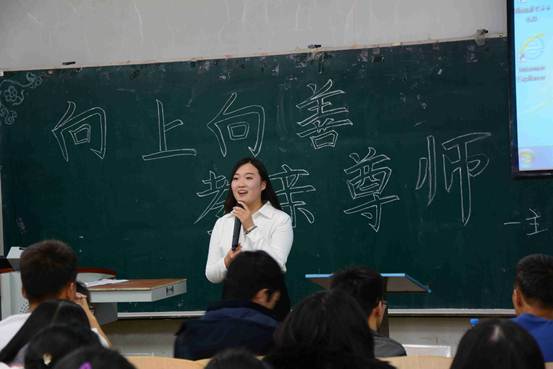 向上向善
孝亲尊师
一主
Internet
Explorer